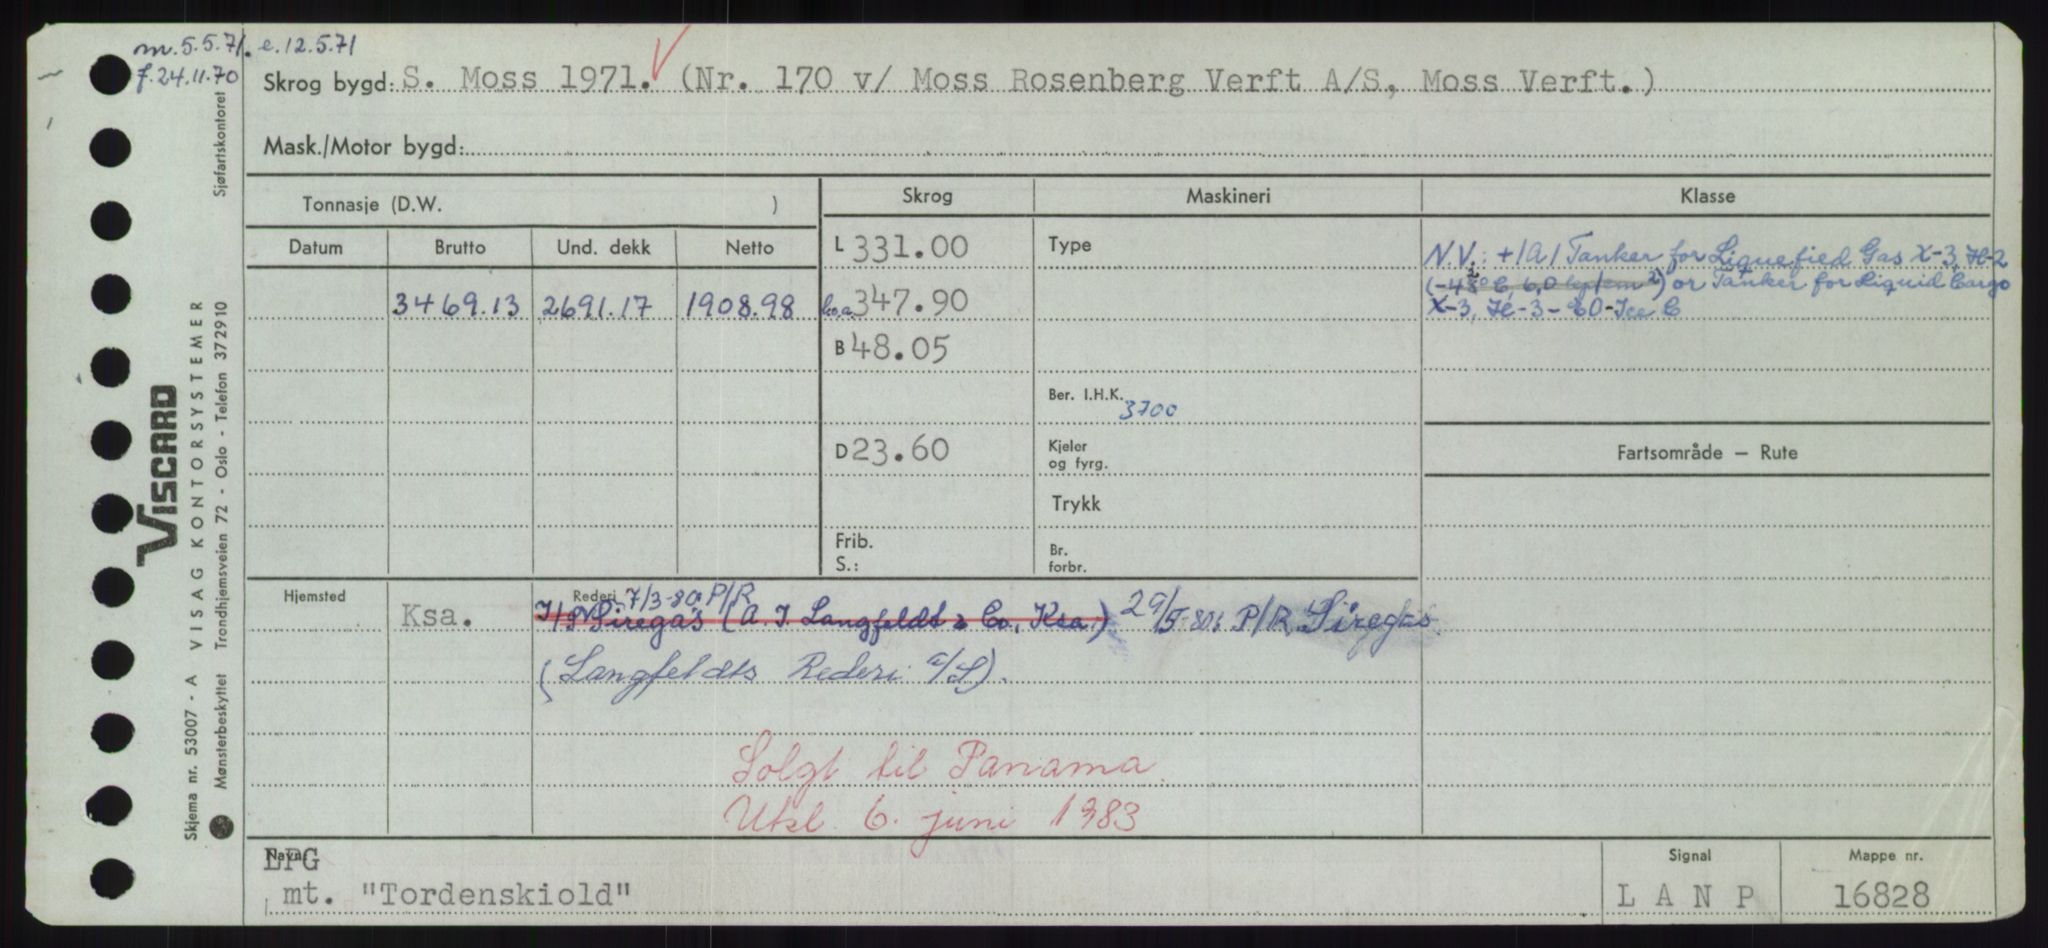 m. 5.5.71. e. 12.5.71
f. 24.11.70
Skrog bygd: S. Moss 1971. (Nr. 170 v/ Moss Rosenberg Verft A/S, Moss Verft.)
Mask./Motor bygd:
Tonnasje (D.W. )
Skrog
Maskineri
Klasse
Datum Brutto Und. dekk Netto
L 331.00
Type
N.V.: +1A1 Tanker for Liquefied Gas X-3, H-2
(-48° C 6,0 kp/cm²) or Tanker for Liquid Cargo
X-3, -3 - EO - Ice C
3469.13 2691.17 1908.98
Lo.a. 347.90
B 48.05
Ber. I.H.K. 3700
D 23.60
Kjeler
og fyrg.
Fartsområde – Rute
Trykk
Frib.
S.:
Br.
forbr.
Hjemsted Ksa.
Rederi 7/3-80 P/R
I/S Siregas (A. I. Langfeldt & Co, Ksa.) 29/5-80 P/R Siregas
(Langfeldts Rederi A/S).
Solgt til Panama.
Utkl. 6. juni 1983
Navn:
LPG
mt. "Tordenskiold"
Signal
L A N P
Mappe nr.
16828
VISCARD
Skjema nr. 53007 - A VISAG KONTORSYSTEMER
Mønsterbeskyttet Trondhjemsveien 72 - Oslo - Telefon 372910 Sjøfartskontoret